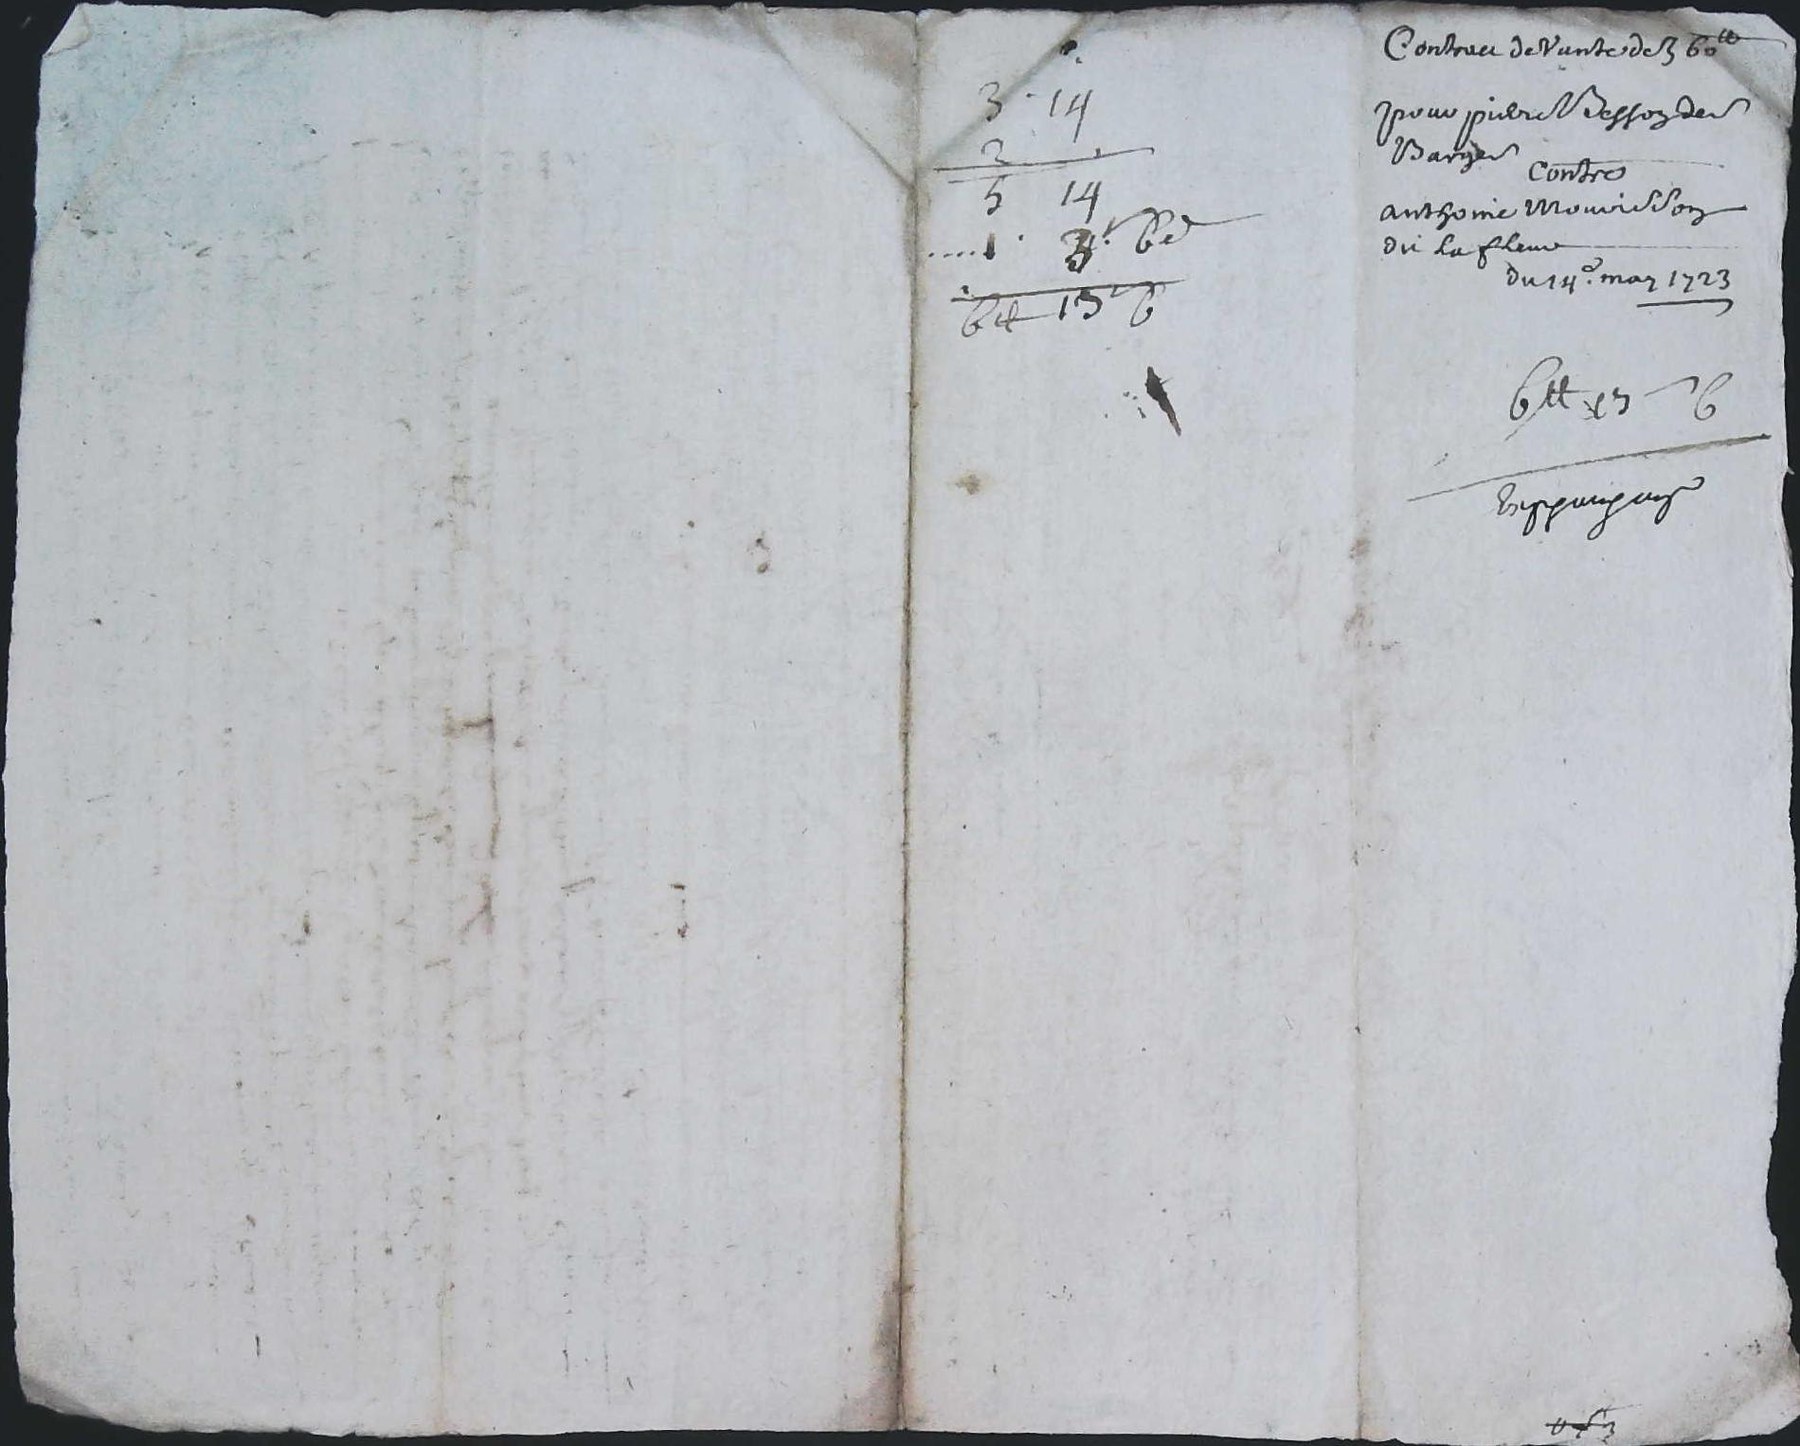 3 · 14
2 ·
5 14
1 · 3ˢ 6 d
6 tt 13ˢ 6
Contract de Vante de 360 tt
pour pierre Besson de
Barges
Contre
anthoine Mourisson
dit La fleur
du 14ᵉ. may 1723
6 tt 13 ˢ 6